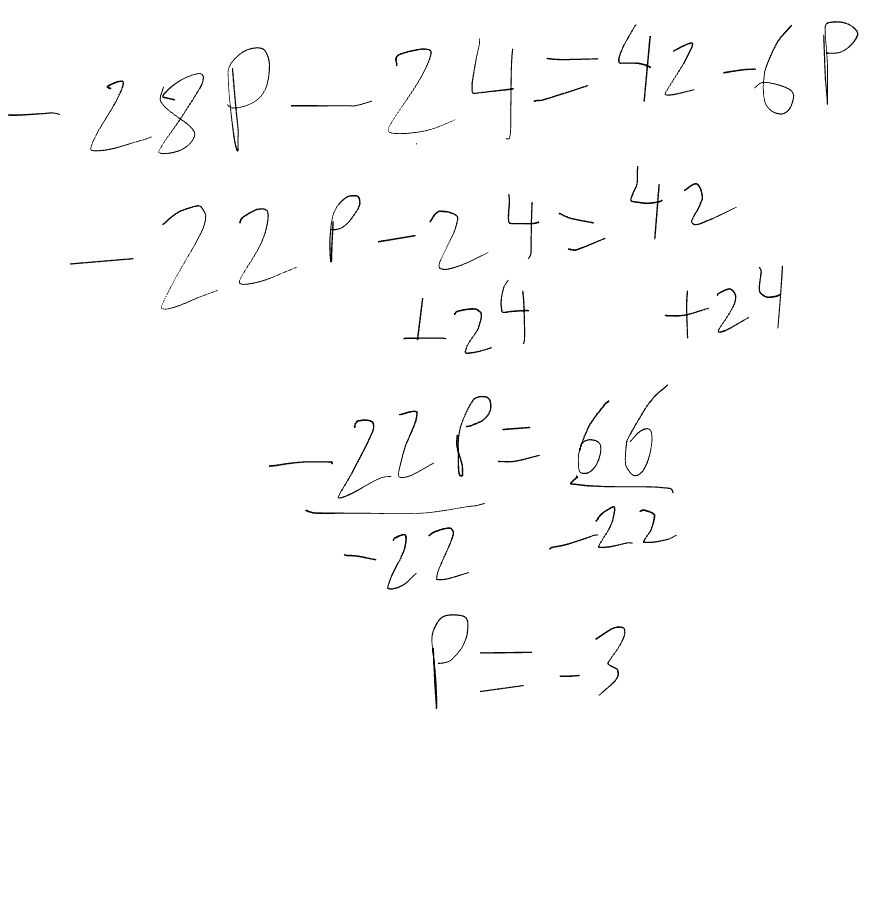 -28P - 24 = 42 - 6P
-22P - 24 = 42
+24 +24
-22P = 66
-22 -22
P = -3